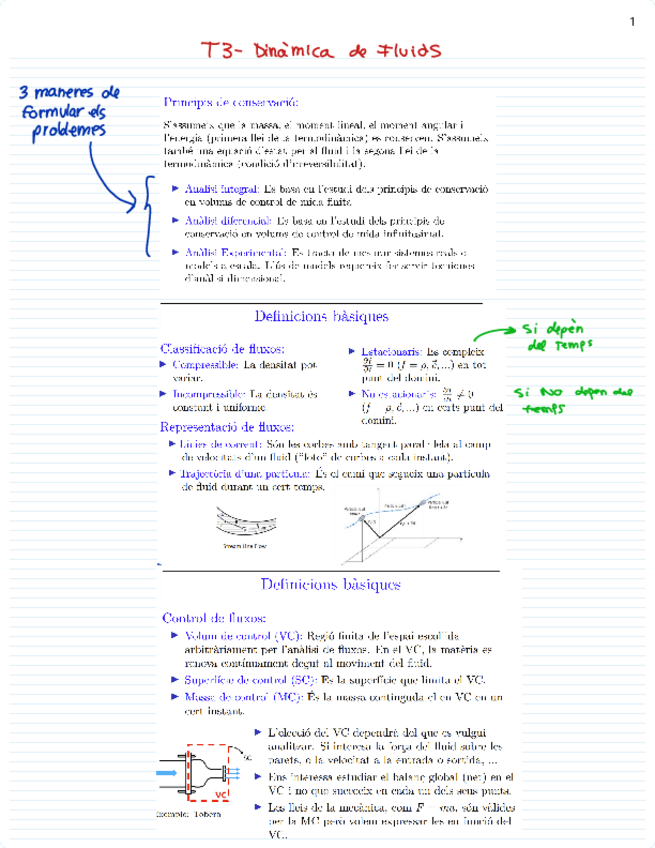 1
T3- Dinàmica de Fluids
3 maneres de
formular els
problemes
Principis de conservació:
S'assumeix que la massa, el moment lineal, el moment angular i
l'energia (primera llei de la termodinàmica) es conserven. S'assumeix
també una equació d'estat per al fluid i la segona llei de la
termodinàmica (condició d'irreversibilitat).
▶ Anàlisi integral: Es basa en l'estudi dels principis de conservació
en volums de control de mida finita.
▶ Anàlisi diferencial: Es basa en l'estudi dels principis de
conservació en volums de control de mida infinitesimal.
▶ Anàlisi Experimental: Es tracta de mesurar sistemes reals o
models a escala. L'ús de models requereix fer servir tècniques
d'anàlisi dimensional.
Definicions bàsiques
Classificació de fluxos:
▶ Compressible: La densitat pot
variar.
▶ Incompressible: La densitat és
constant i uniforme.
▶ Estacionaris: Es compleix
∂f/∂t = 0 (f = ρ, v⃗, ...) en tot
punt del domini.
▶ No estacionaris: ∂f/∂t ≠ 0
(f = ρ, v⃗, ...) en certs punt del
domini.
Si depèn
del Temps
Si NO depen del
temps
Representació de fluxos:
▶ Línies de corrent: Són les corbes amb tangent paral·lela al camp
de velocitats d'un fluid ("foto" de corbes a cada instant).
▶ Trajectòria d'una partícula: És el camí que segueix una partícula
de fluid durant un cert temps.
Stream line flow
Definicions bàsiques
Control de fluxos:
▶ Volum de control (VC): Regió finita de l'espai escollida
arbitràriament per l'anàlisi de fluxos. En el VC, la matèria es
renova contínuament degut al moviment del fluid.
▶ Superfície de control (SC): És la superfície que limita el VC.
▶ Massa de control (MC): És la massa continguda el en VC en un
cert instant.
SC
VC
Exemple: Tobera
▶ L'elecció del VC dependrà del que es vulgui
analitzar. Si interessa la força del fluid sobre les
parets, o la velocitat a la entrada o sortida, ...
▶ Ens interessa estudiar el balanç global (net) en el
VC i no que succeeix en cada un dels seus punts.
▶ Les lleis de la mecànica, com F = ma, són vàlides
per la MC però volem expressar-les en funció del
VC.